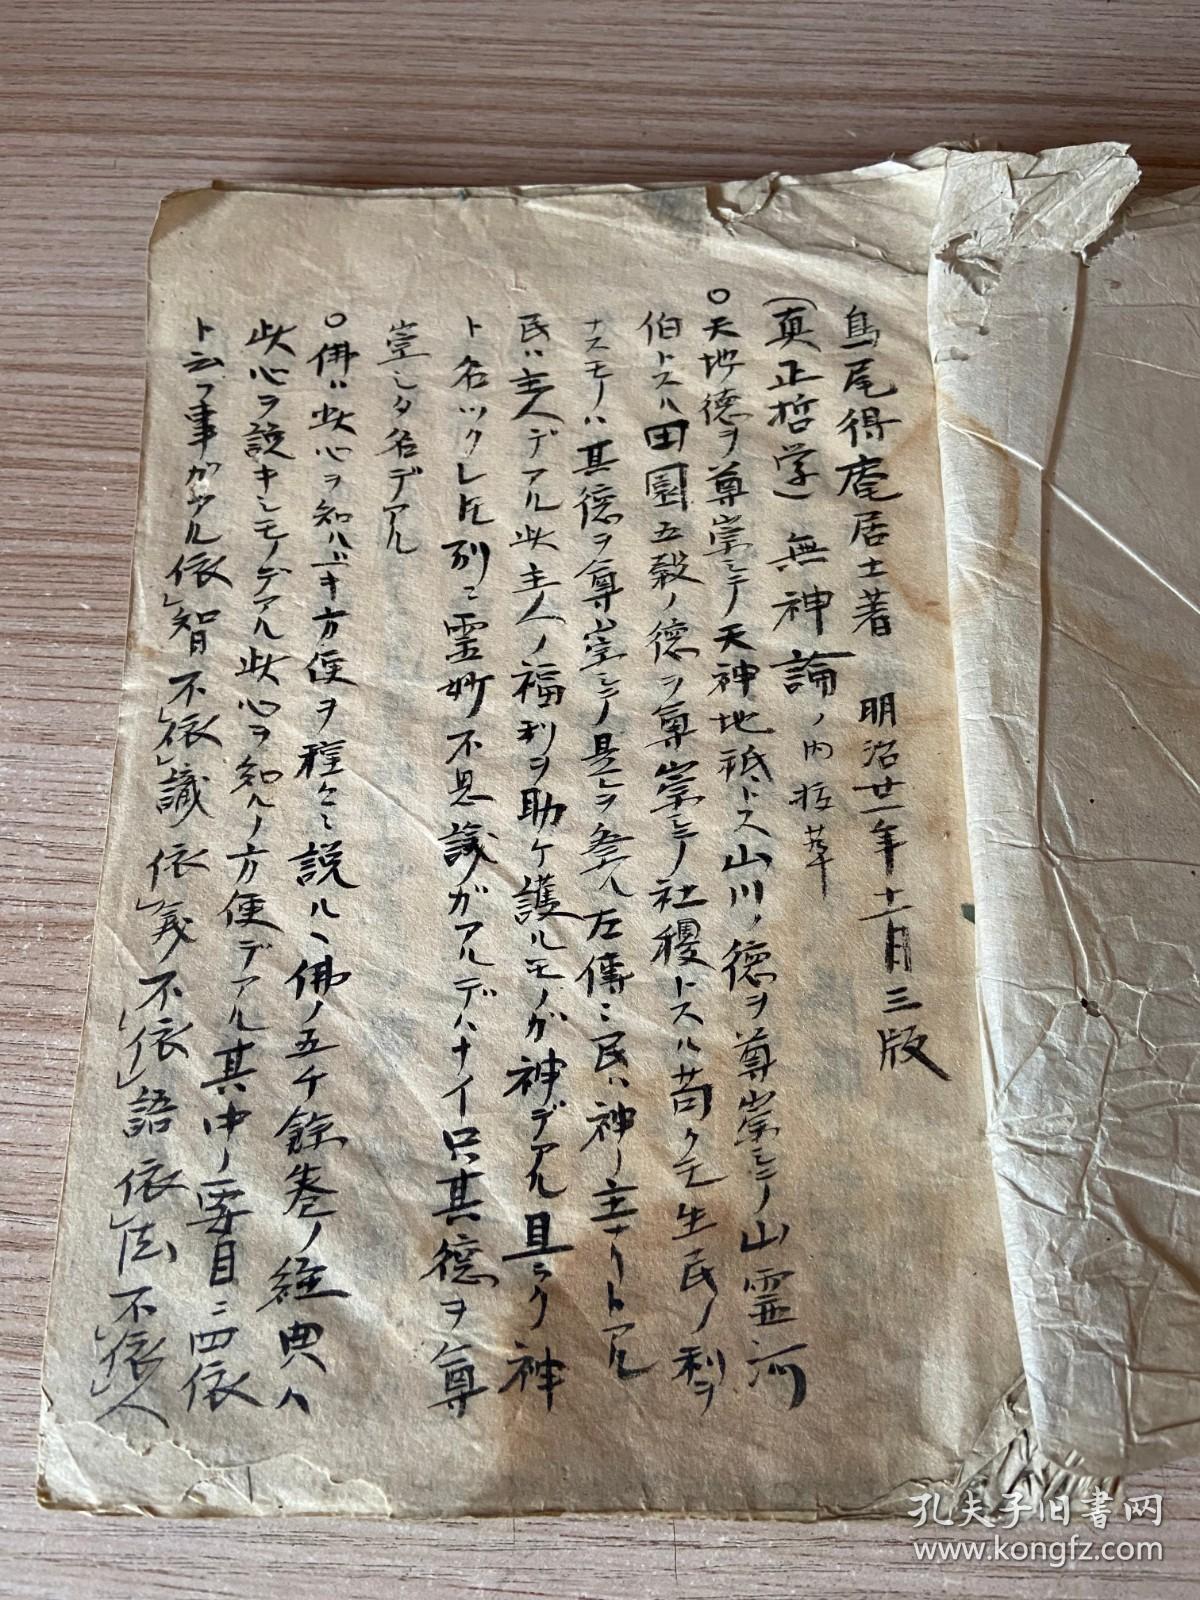 鳥尾得庵居士著　明治廿一年十一月三版
(真正哲学)無神論ノ内抜萃
○天地ノ徳ヲ尊崇シテ天神地祇トス山川ノ徳ヲ尊崇シテ山霊河
伯トス田園五穀ノ徳ヲ尊崇シテ社稷トスル苟クモ生民ノ利ヲ
ナスモノハ其徳ヲ尊崇シテ是ヲ祭ル左傳ニ民ハ神ノ主ナートアル
民ハ主人デアル此主人ノ福利ヲ助ケ護ルモノガ神デアル且ラク神
ト名ツクレ𪜈別ニ霊妙不思議ガアルデハナイ只其徳ヲ尊
崇シタ名デアル
○佛ハ此心ヲ知ルベキ方便ヲ種々ニ説ル、佛ノ五千餘巻ノ経典ハ
此心ヲ説キシモノデアル此心ヲ知ルノ方便デアル其中ノ要目ニ四依
ト云フ事ガアル依智不依識依義不依語依法不依人
孔夫子旧书网
www.kongfz.com